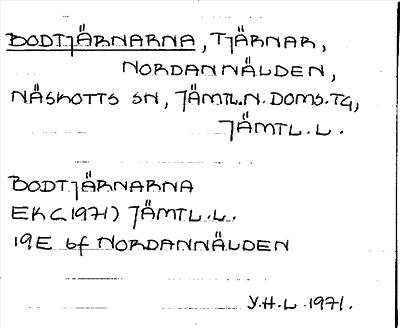 BODTJÄRNARNA, TJÄRNAR,
NORDANNÄLDEN,
NÄSKOTTS SN, JÄMTL.N.DOMS.TG,
JÄMTL.L.
BODTJÄRNARNA
EK (1971) JÄMTL.L.
19E 6f NORDANNÄLDEN
Y.H.L 1971.